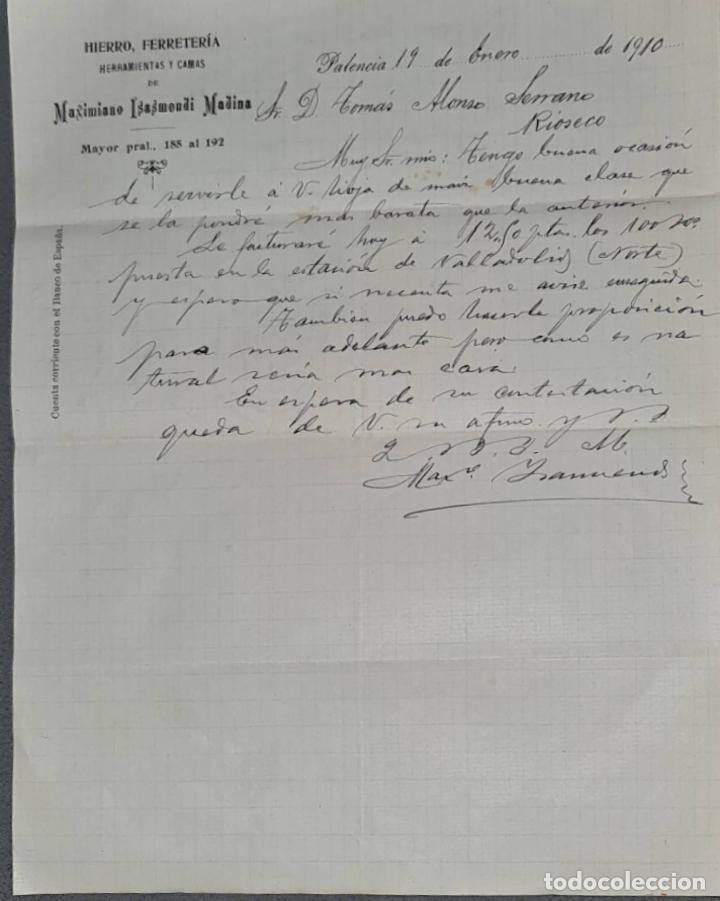 HIERRO, FERRETERÍA
HERRAMIENTAS Y CAMAS
DE
Maximiano Isasmendi Madina
Mayor pral., 188 al 192
Cuenta corriente con el Banco de España.
Palencia 19 de Enero de 1910
Sr. D. Tomás Alonso Serrano
Rioseco
Muy Sr. mio: Tengo buena ocasión
de servirle á V. hoja de maiz buena clase que
se la pondré mas barata que la anterior.
Se facturaré hoy á 12,50 ptas. los 100 
puesta en la estación de Valladolid (Norte)
y espero que si necesita me avise enseguida.
Tambien puedo hacerle proposición
para más adelante pero como es na
tural seria mas cara.
En espera de su contestación
queda de V. su afmo. y S. S.
Q. B. S. M.
Max.º Isasmendi
todocoleccion